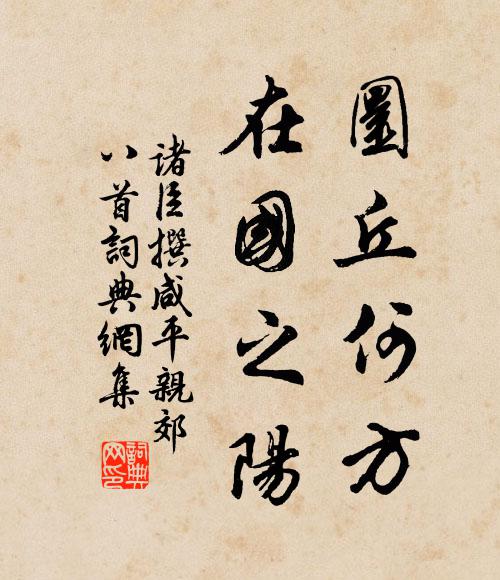 圜丘何方
在國之陽
諸臣撰咸平親郊
八首詞典網集
詞典
网印